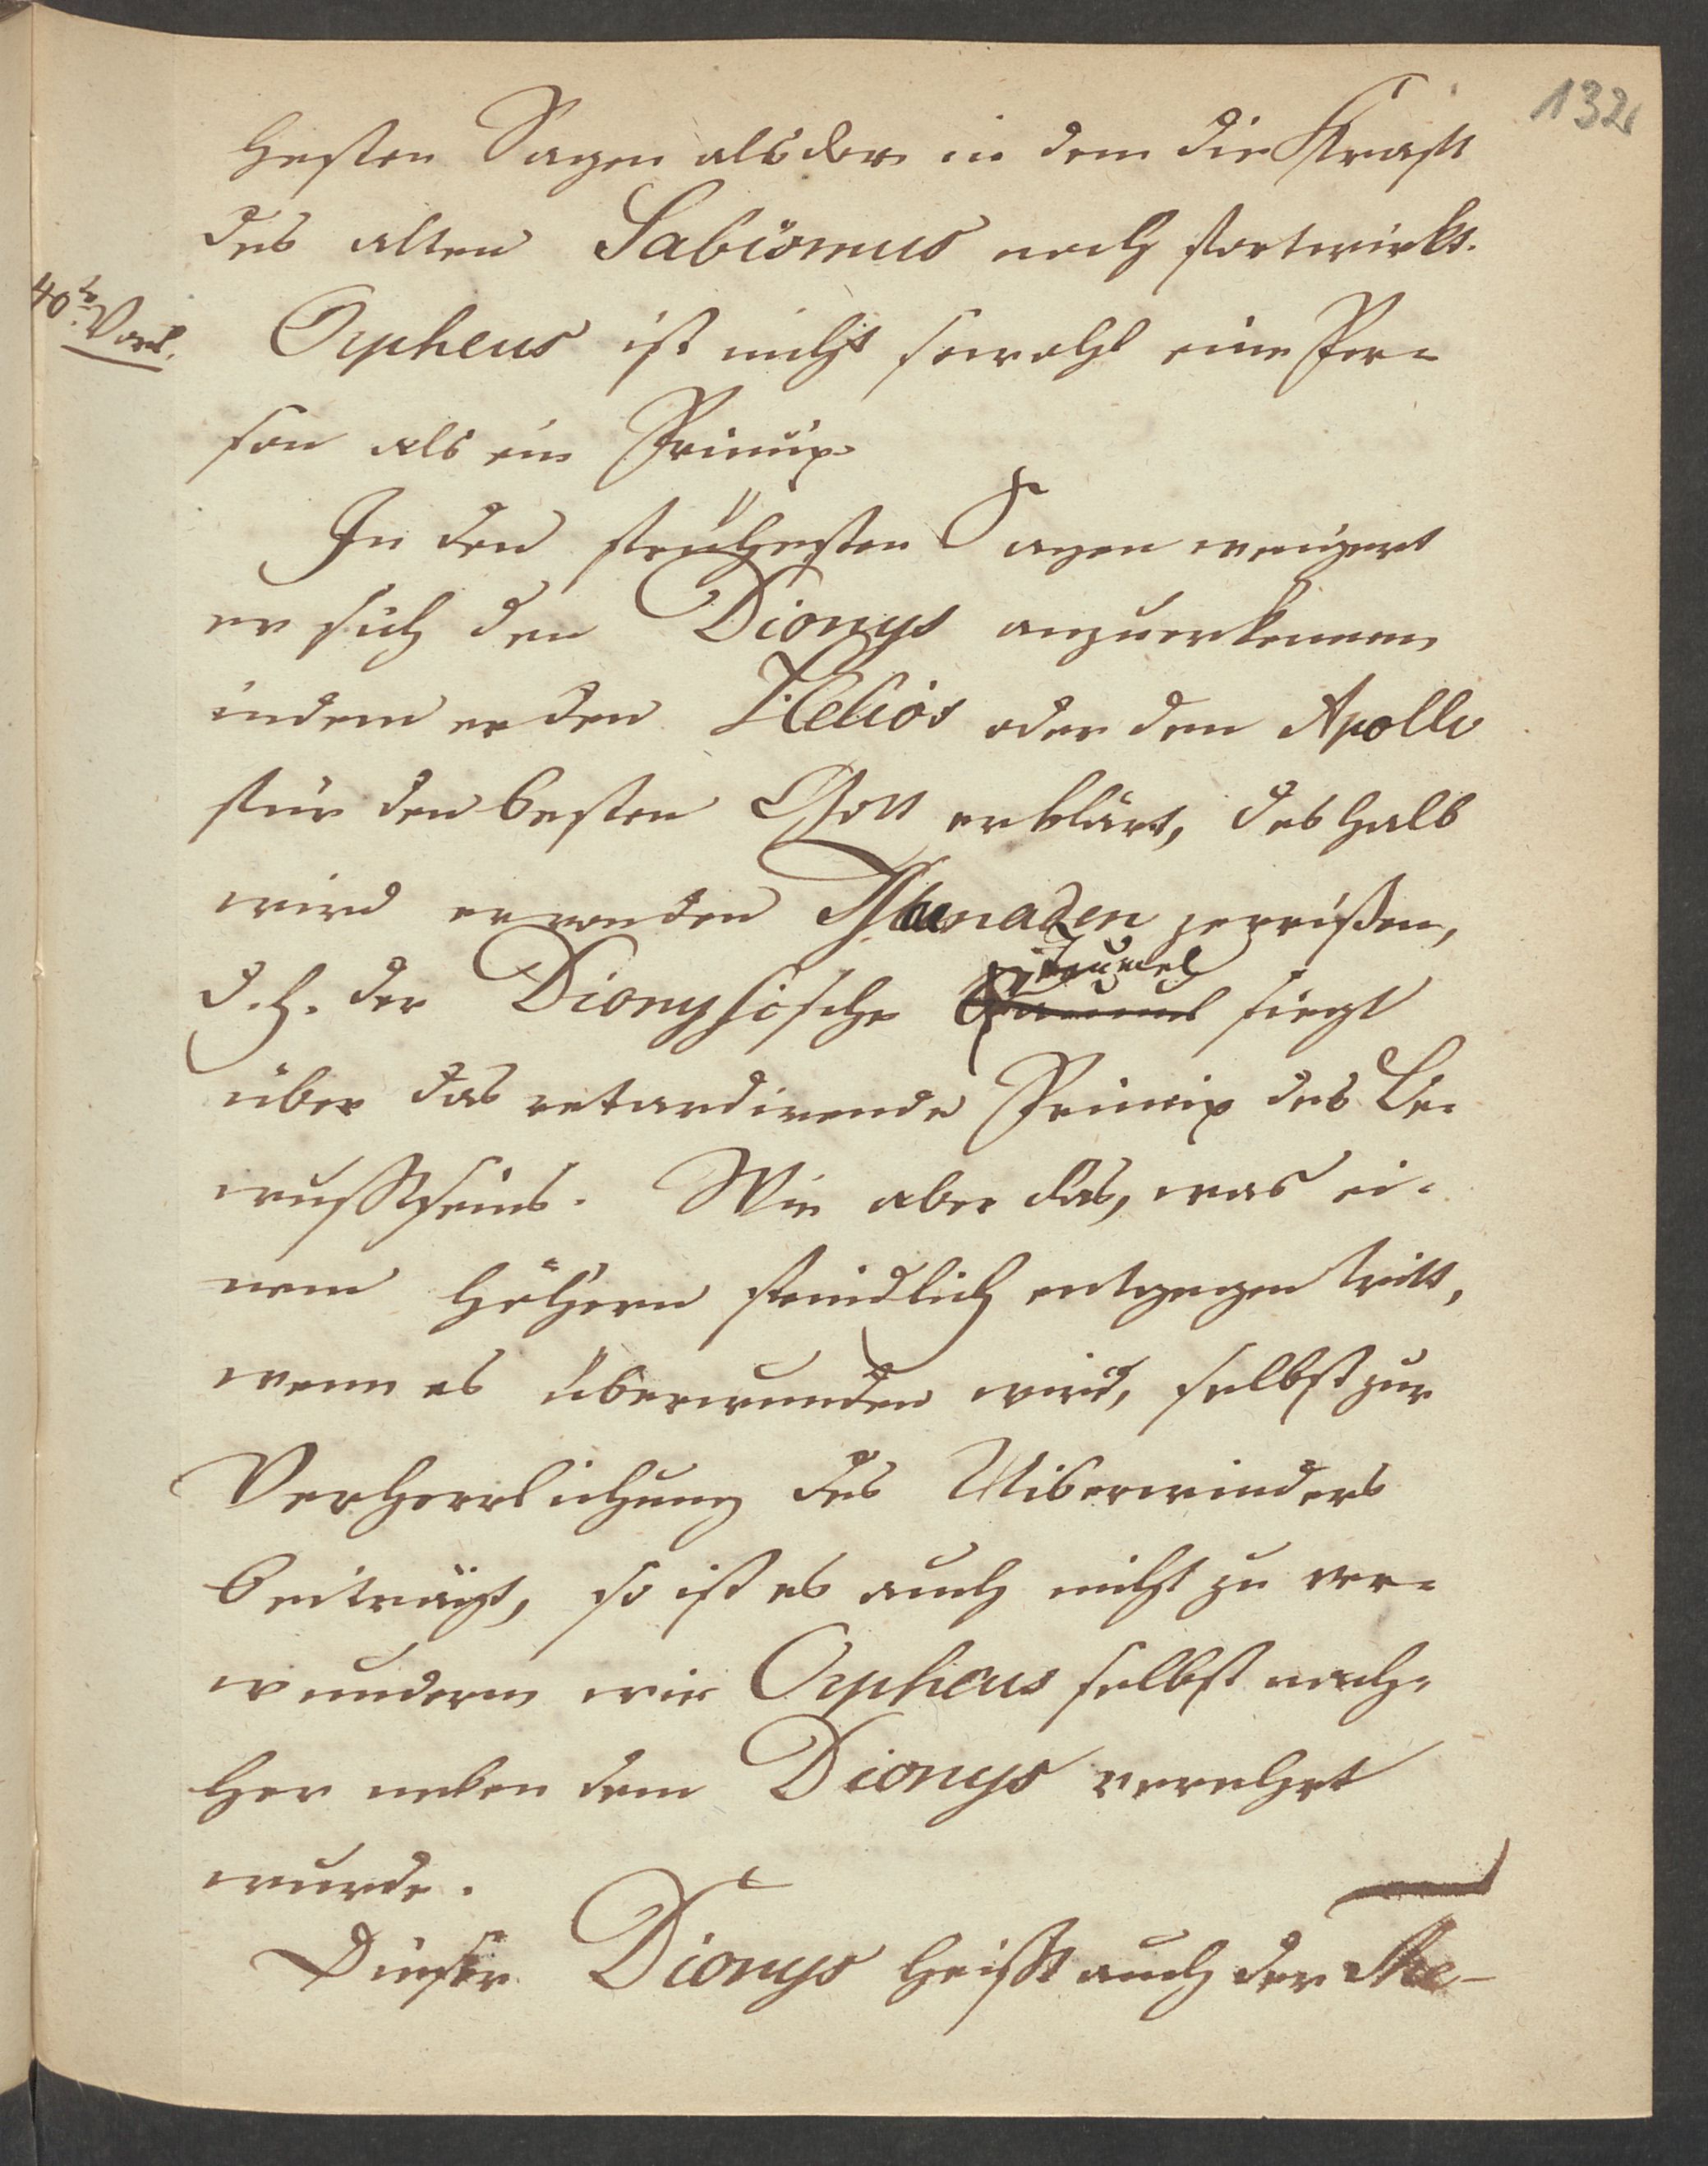 132
hesten Sagen als der in dem die Kraft
des alten Sabismus noch fortwirkt.
40te Vorl.
Orpheus ist nicht sowohl eine Per-
son als ein Princip.
In den frühesten Sagen weigert
er sich den Dionys anzuerkennen
indem er den Helios oder den Apollo
für den besten Gott erklärt, deshalb
wird er von den Maenaden zerrißen,
Taumel
d. h. der Dionysische siegt
über das retardirende Princip des Be-
wußtseins. Wie aber das, was ei-
nem Höhern feindlich entgegen tritt,
wenn es überwunden wird, selbst zur
Verherrlichung des Uiberwinders
beiträgt, so ist es auch nicht zu ver-
wundern wie Orpheus selbst nach-
her neben dem Dionys verehrt
wurde.
Dieser Dionys heißt auch der The-